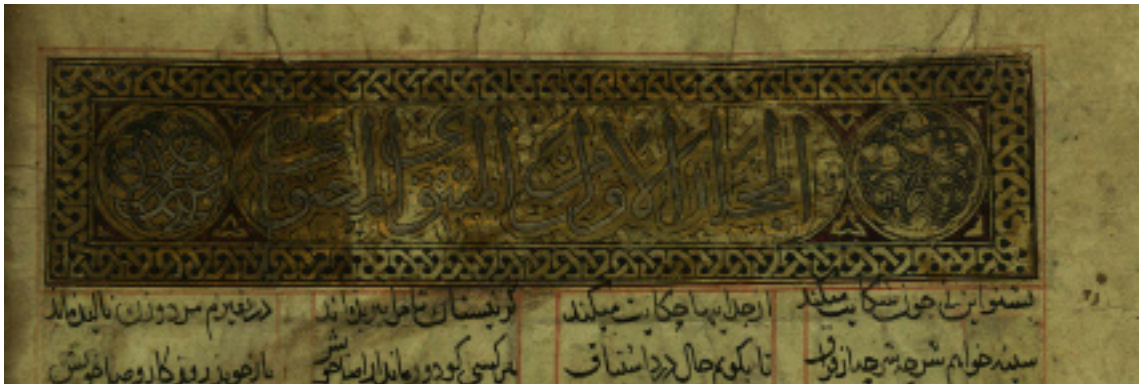 المجلد الاول من المثنوی المعنوی
بشنو این نی جون شکایت میکند از جداییها حکایت میکند کز نیستان تا مرا ببریده‌اند در نفیرم مرد و زن نالیده‌اند
سینه خواهم شرحه شرحه از فراق تا بکویم حال درد اشتیاق هر کسی کو دور ماند از اصل خویش باز جوید روزکار وصل خویش